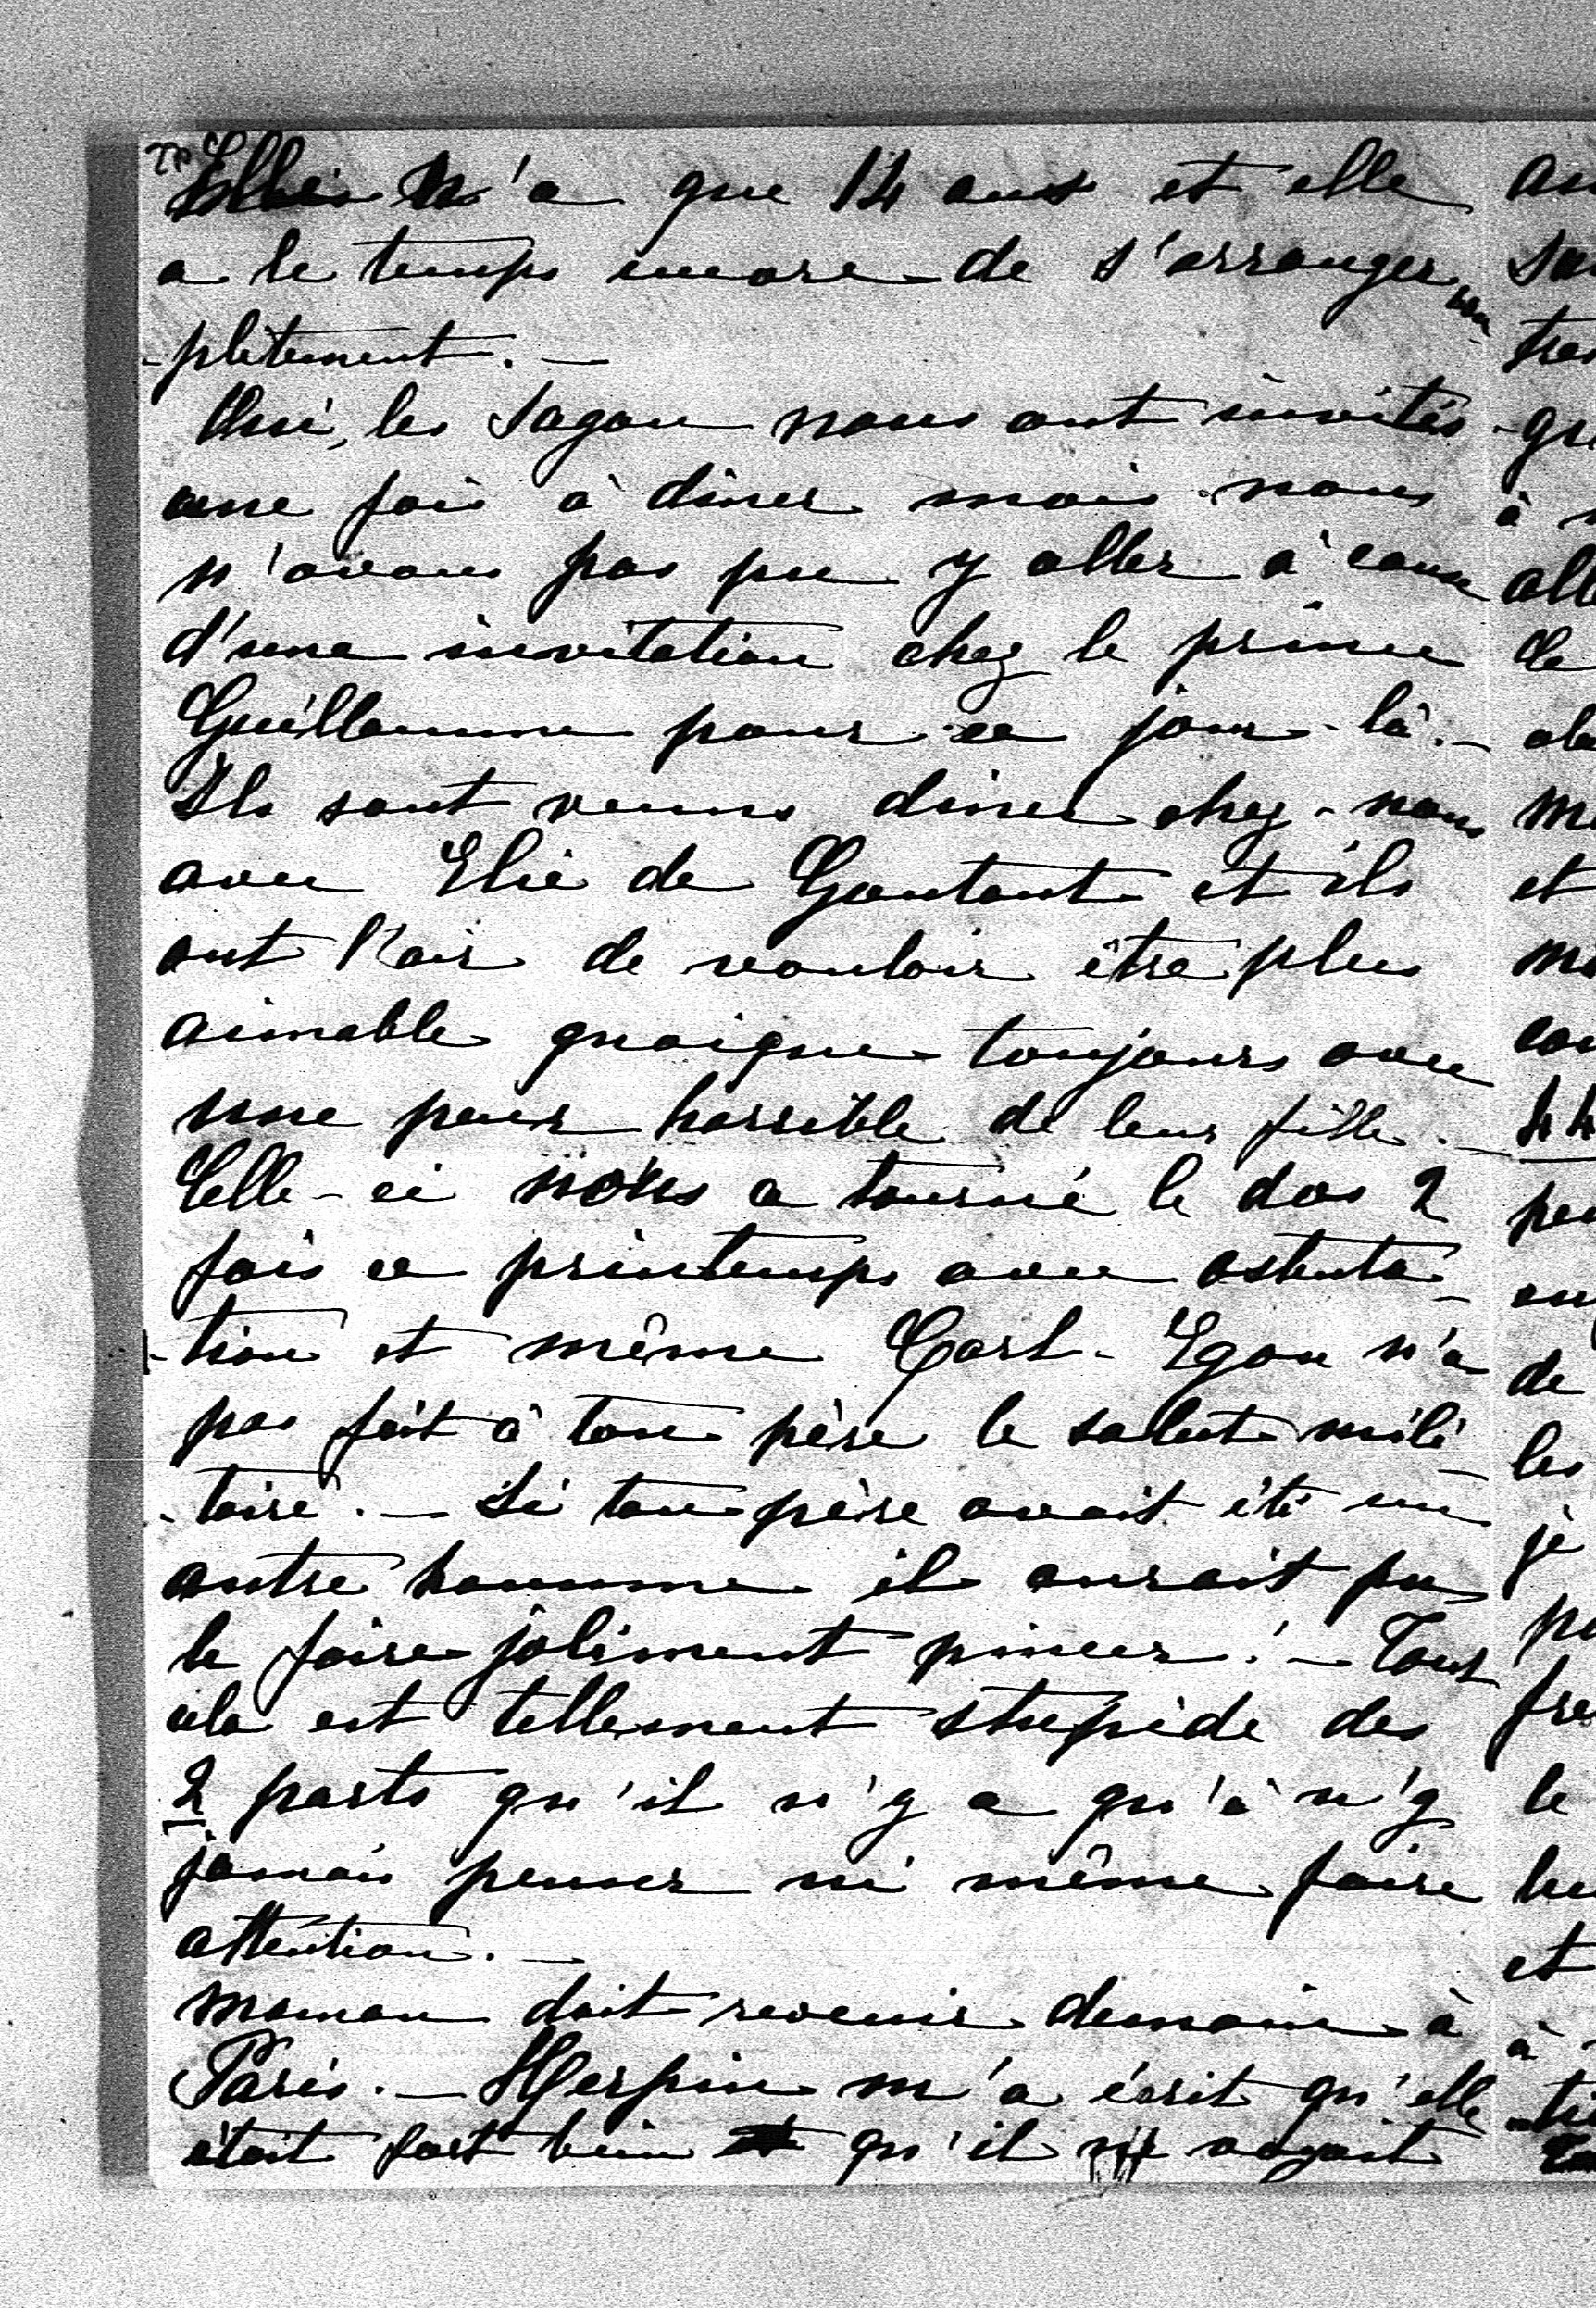 Elle n'a que 14 ans et elle
a le temps encore de s'arranger com
-plètement. —
Oui, les Sagan nous ont invités
une fois à dîner mais nous
n'avons pas pu y aller à cause
d'une invitation chez le prince
Guillaume pour ce jour-là. —
Ils sont venus dîner chez-nous
avec Elie de Gontaut et ils
ont l'air de vouloir être plus
aimable quoique toujours avec
une peur horrible de leur fille. —
Celle-ci nous a tourné le dos 2
fois ce printemps avec ostenta-
-tion et même Carl-Egon n'a
pas fait à ton père le salut mili-
-taire. — Si ton père avait été un
autre homme il aurait pu
le faire joliment pincer! — Tout
cela est tellement stupide des
2 parts qu'il n'y a qu'à n'y
jamais penser ni même faire
attention. —
maman doit revenir demain à
Paris. — Herpin m'a écrit qu'elle
était fort bien qu'il voyait